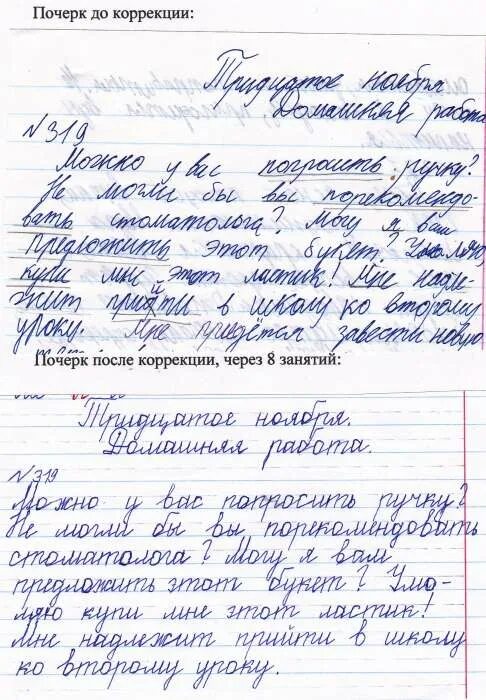 Почерк до коррекции:
Тридцатое ноября
Домашняя работа
№319
Можно у вас попросить ручку?
Не могли бы вы порекомендо-
вать стоматолога? Могу я вам
предложить этот букет? Умоляю,
купи мне этот ластик! Мне надле-
жит прийти в школу ко второму
уроку. Мне придётся завести новую
Почерк после коррекции, через 8 занятий:
Тридцатое ноября.
Домашняя работа.
№319
Можно у вас попросить ручку?
Не могли бы вы порекомендовать
стоматолога? Могу я вам
предложить этот букет? Умо-
ляю купи мне этот ластик!
Мне надлежит прийти в школу
ко второму уроку.